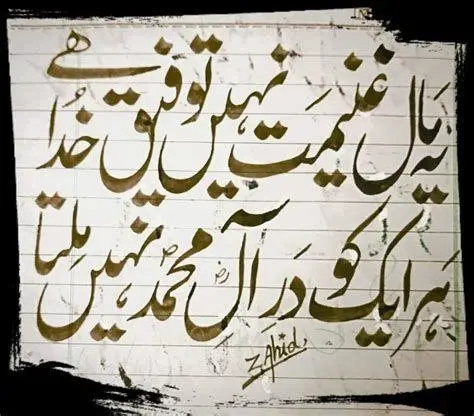 یہ مالِ غنیمت نہیں توفیق خدا ہے
ہر ایک کو درِ آلِ محمدؐ نہیں ملتا
Zahid.